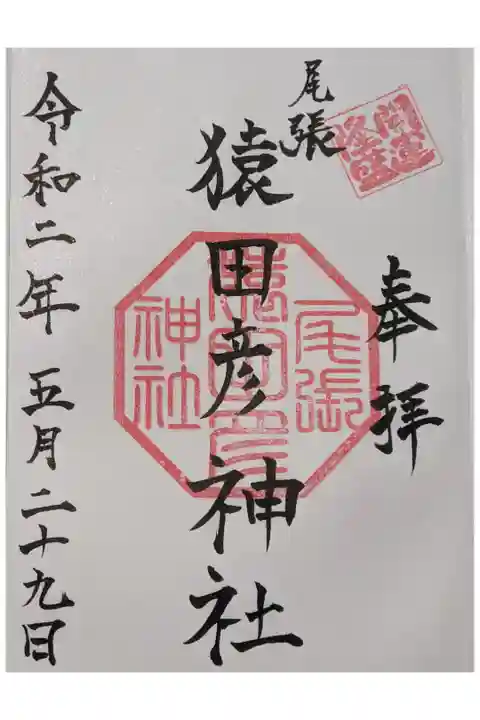 開運
隆盛
奉拝
尾張
猿田彦神社
尾張
猿田彦
神社
令和二年五月二十九日